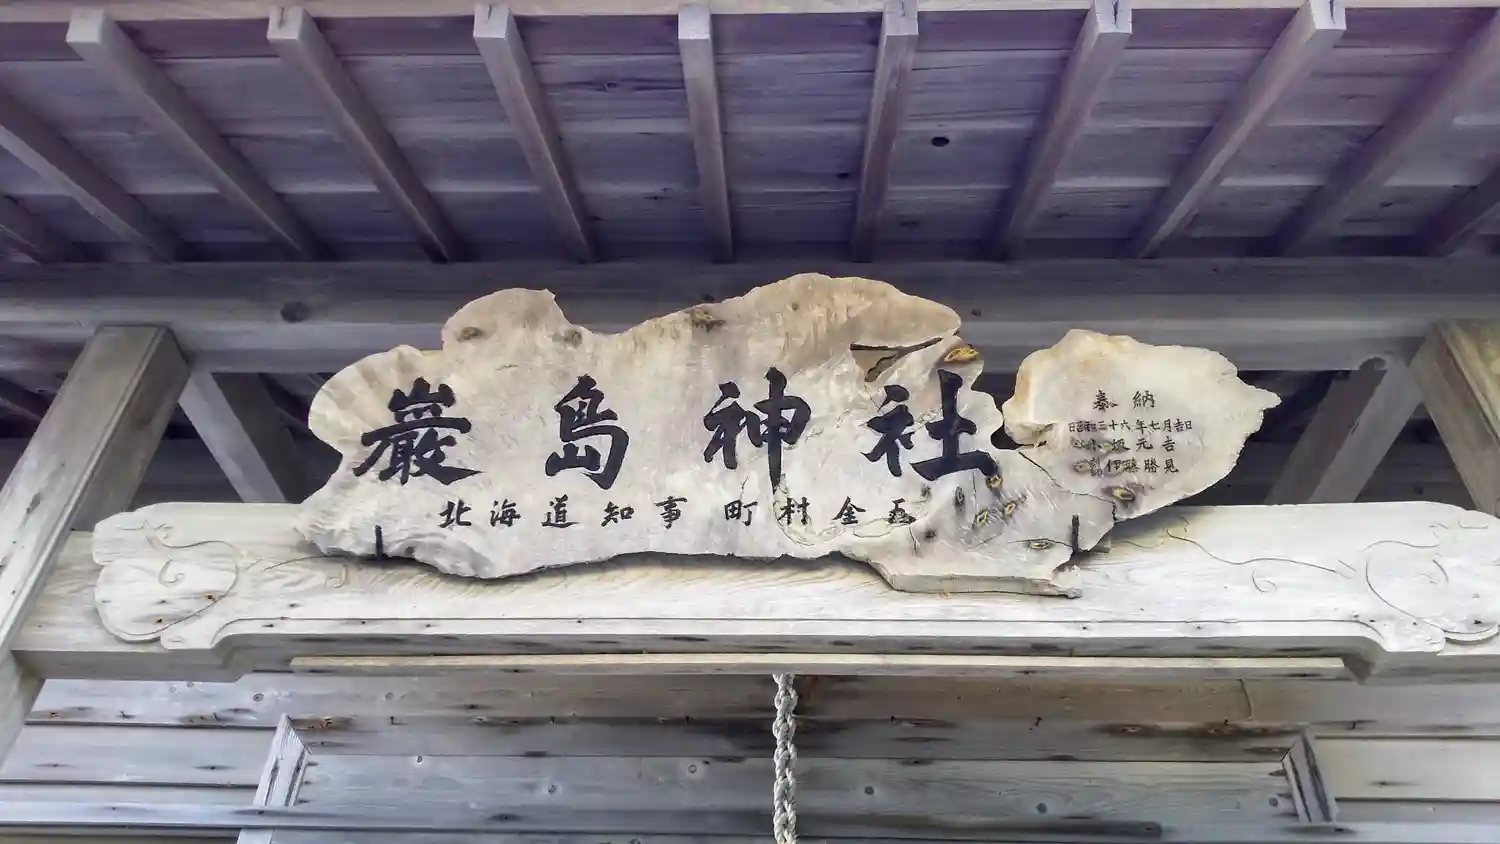 巖島神社
北海道知事 町村金五
奉納
昭和三十六年七月吉日
小坂元吉
伊藤勝見